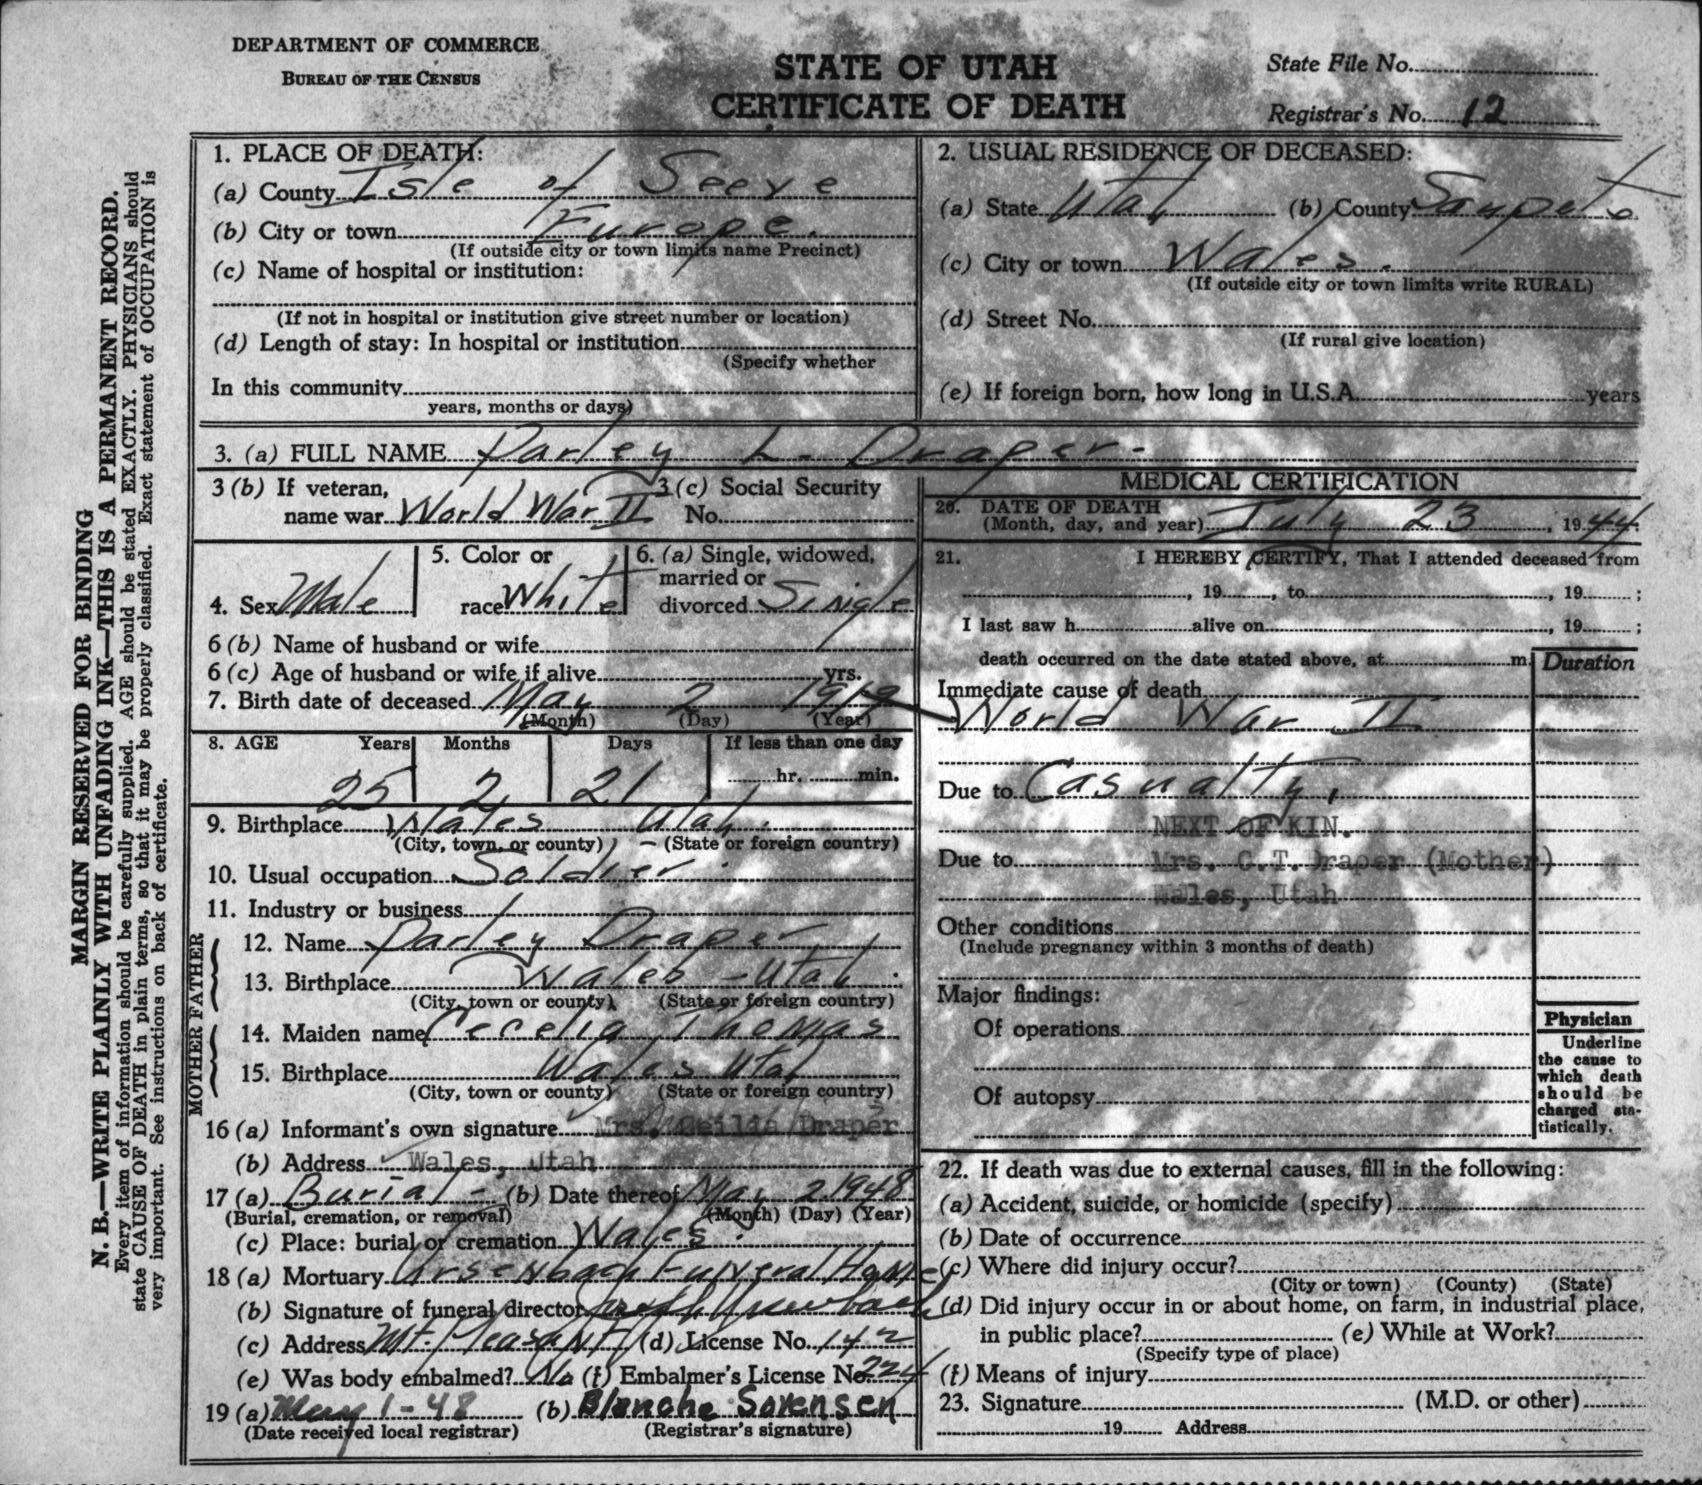 DEPARTMENT OF COMMERCE
BUREAU OF THE CENSUS
STATE OF UTAH
CERTIFICATE OF DEATH
State File No.
Registrar's No. 12
MARGIN RESERVED FOR BINDING
N. B.—WRITE PLAINLY WITH UNFADING INK—THIS IS A PERMANENT RECORD.
Every item of information should be carefully supplied. AGE should be stated EXACTLY. PHYSICIANS should
state CAUSE OF DEATH in plain terms, so that it may be properly classified. Exact statement of OCCUPATION is
very important. See instructions on back of certificate.
1. PLACE OF DEATH:
(a) County Isle of Seeve
(b) City or town Europe.
(If outside city or town limits name Precinct)
(c) Name of hospital or institution:
(If not in hospital or institution give street number or location)
(d) Length of stay: In hospital or institution
(Specify whether
In this community
years, months or days)
2. USUAL RESIDENCE OF DECEASED:
(a) State Utah (b) County Sanpete
(c) City or town Wales.
(If outside city or town limits write RURAL)
(d) Street No.
(If rural give location)
(e) If foreign born, how long in U.S.A. years
3. (a) FULL NAME Parley L. Draper.
3 (b) If veteran,
name war World War II
3 (c) Social Security
No.
4. Sex Male
5. Color or
race White
6. (a) Single, widowed,
married or
divorced Single
6 (b) Name of husband or wife
6 (c) Age of husband or wife if alive yrs.
7. Birth date of deceased May 2 1919
(Month) (Day) (Year)
8. AGE Years Months Days If less than one day
25 2 21 hr. min.
9. Birthplace Wales Utah.
(City, town, or county) (State or foreign country)
10. Usual occupation Soldier
11. Industry or business
FATHER
12. Name Parley Draper
13. Birthplace Wales - Utah.
(City, town or county) (State or foreign country)
MOTHER
14. Maiden name Cecelia Thomas
15. Birthplace Wales Utah
(City, town or county) (State or foreign country)
16 (a) Informant's own signature Mrs. Ceilia Draper
(b) Address Wales, Utah
17 (a) Burial - (b) Date thereof May 2 1948
(Burial, cremation, or removal) (Month) (Day) (Year)
(c) Place: burial or cremation Wales.
18 (a) Mortuary Ursenbach Funeral Home
(b) Signature of funeral director
(c) Address Mt. Pleasant (d) License No. 142
(e) Was body embalmed? No (f) Embalmer's License No. 224
19 (a) May 1-48 (b) Blanche Sorensen
(Date received local registrar) (Registrar's signature)
MEDICAL CERTIFICATION
20. DATE OF DEATH
(Month, day, and year) July 23, 1944
21. I HEREBY CERTIFY, That I attended deceased from
, 19 , to , 19 ;
I last saw h alive on , 19 ;
death occurred on the date stated above, at m.
Duration
Immediate cause of death
World War II
Due to Casualty,
NEXT OF KIN.
Due to Mrs. C.T. Draper (Mother)
Wales, Utah
Other conditions
(Include pregnancy within 3 months of death)
Major findings:
Of operations
Of autopsy
Physician
Underline
the cause to
which death
should be
charged sta-
tistically.
22. If death was due to external causes, fill in the following:
(a) Accident, suicide, or homicide (specify)
(b) Date of occurrence
(c) Where did injury occur?
(City or town) (County) (State)
(d) Did injury occur in or about home, on farm, in industrial place,
in public place? (e) While at Work?
(Specify type of place)
(f) Means of injury
23. Signature (M.D. or other)
19 Address